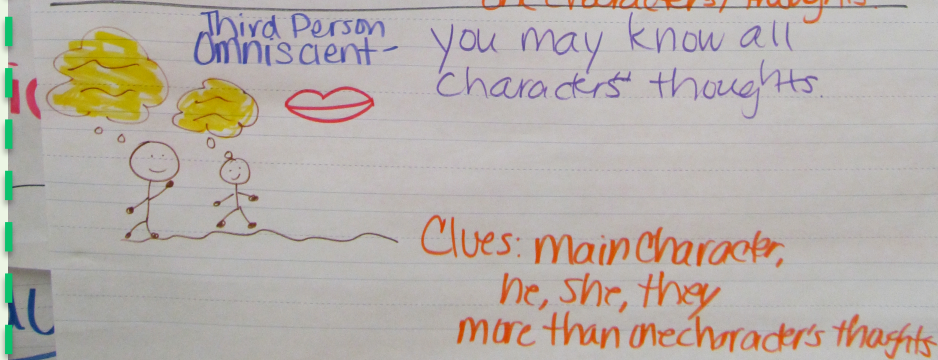 one character's thoughts.
Third Person
Omniscient-
you may know all
characters' thoughts.
Clues: main character,
he, she, they
more than one character's thoughts